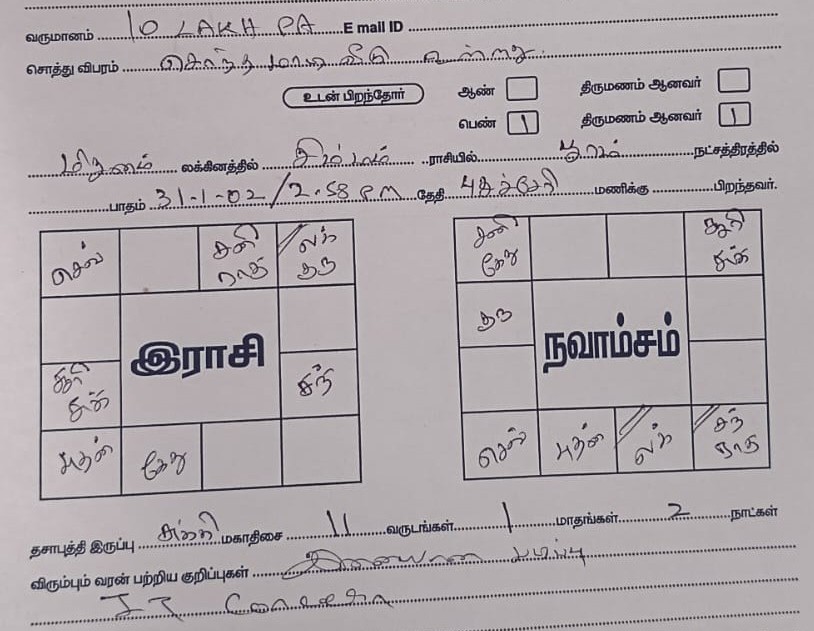 வருமானம் ..... 10 LAKH PA ..... E mail ID .....
சொத்து விபரம் ..... சொந்தமான வீடு உள்ளது.
உடன் பிறந்தோர் ஆண் திருமணம் ஆனவர்
பெண் 1 திருமணம் ஆனவர் 1
..... மிதுனம் லக்கினத்தில் ..... சிம்மம் ..... ராசியில் ..... பூரம் ..... நட்சத்திரத்தில்
..... பாதம் ..... 31-1-02 / 2.58 PM ..... தேதி புதுச்சேரி ..... மணிக்கு ..... பிறந்தவர்.
செவ் சனி ராகு லக் குரு
சனி கேது சூரி சுக்
குரு
இராசி நவாம்சம்
சூரி சுக் சந்
புதன் கேது
செவ் புதன் லக் சந் ராகு
தசாபுத்தி இருப்பு ..... சுக்கிர மகாதிசை ..... 11 ..... வருடங்கள் ..... 1 ..... மாதங்கள் ..... 2 ..... நாட்கள்
விரும்பும் வரன் பற்றிய குறிப்புகள் ..... இணையான படிப்பு
IT